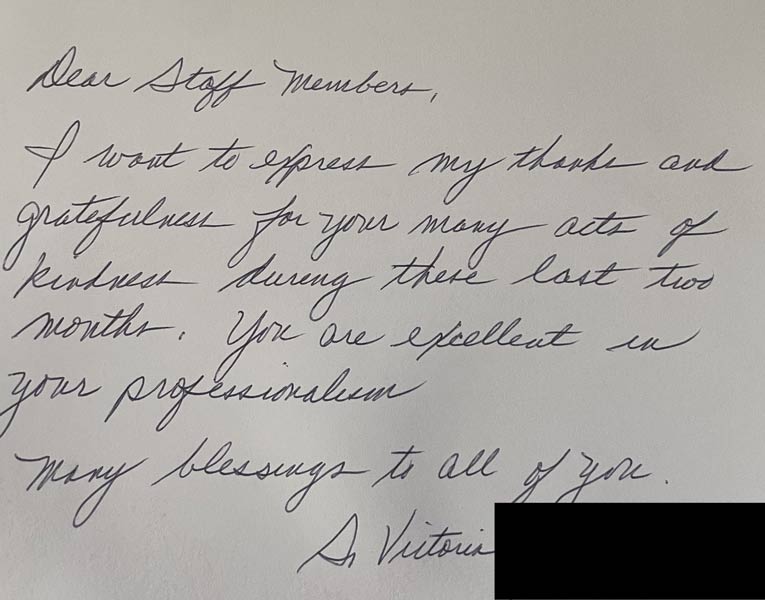 Dear Staff Members,
I want to express my thanks and
gratefulness for your many acts of
kindness during these last two
months. You are excellent in
your professionalism
Many blessings to all of you.
Sr Victoria